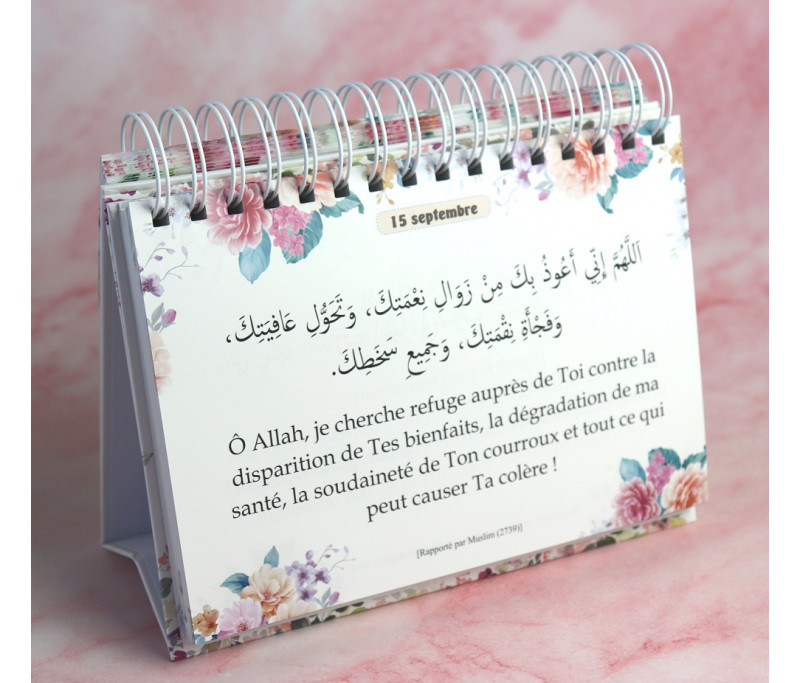 15 septembre
اَللَّهُمَّ إِنِّي أَعُوذُ بِكَ مِنْ زَوَالِ نِعْمَتِكَ، وَتَحَوُّلِ عَافِيَتِكَ،
وَفَجْأَةِ نِقْمَتِكَ، وَجَمِيعِ سَخَطِكَ.
Ô Allah, je cherche refuge auprès de Toi contre la
disparition de Tes bienfaits, la dégradation de ma
santé, la soudaineté de Ton courroux et tout ce qui
peut causer Ta colère !
[Rapporté par Muslim (2739)]